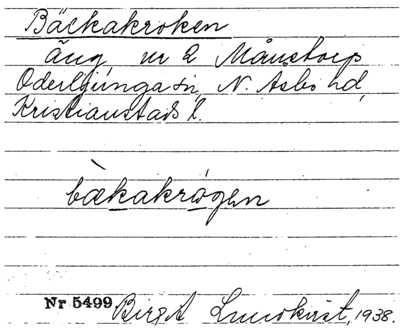 Bäckakroken
äng nr 2 Månstorp
Oderljunga sn, N. Åsbo hd,
Kristianstads l.
bækakrogen
Nr 5499 Birgit Lundkvist, 1938.